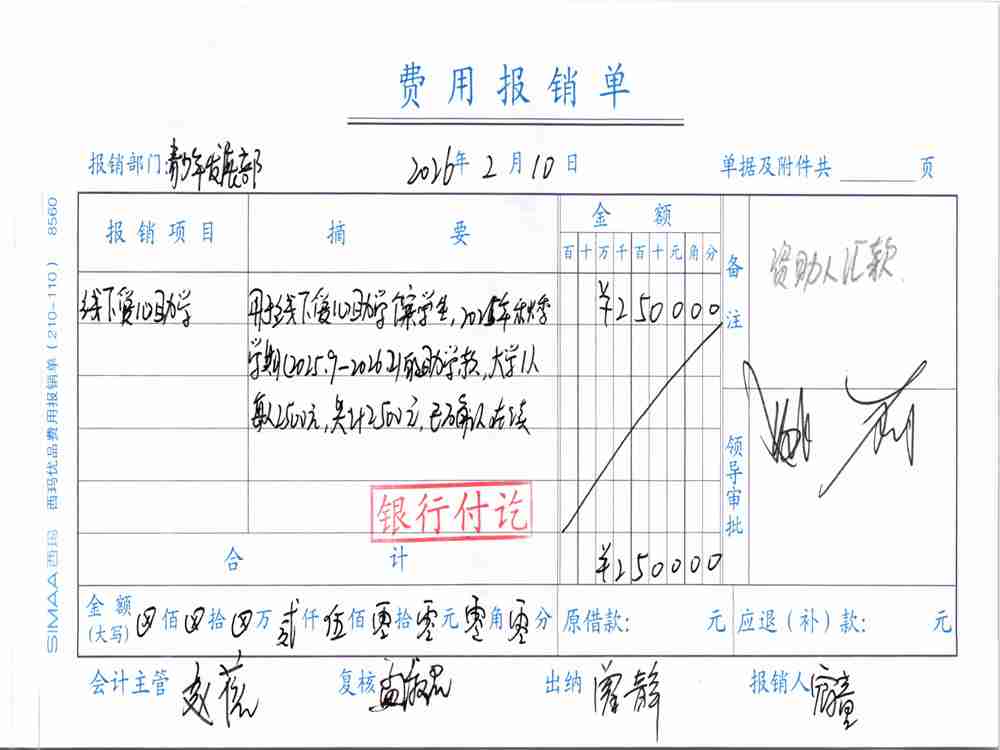 费用报销单
报销部门:青少年发展部 2026年2月10日 单据及附件共 页
报销项目 摘要 金额 备注
百十万千百十元角分
资助人汇款.
线下爱心助学 用于线下爱心助学 学生,2025年秋季 ¥250000
学期(2025.9-2026.2)的助学款,大学1人
每人2500元,共计2500元,已 确认在读
领导审批
银行付讫
合计 ¥250000
金额(大写) 佰 拾 万贰仟伍佰零拾零元零角零分 原借款: 元 应退(补)款: 元
会计主管 赵 复核 孟 出纳 静 报销人
SIMAA西玛 西玛优品费用报销单(210-110) 8560